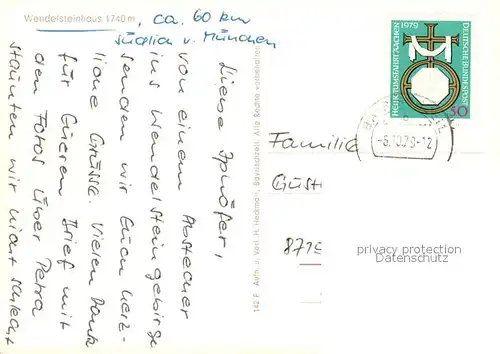 Wendelsteinhaus 1740 m
, ca. 60 km
südlich v. München
Liebe Iphöfer,
von einem Abstecher
ins Wendelsteingebirge
senden wir Euch herz-
liche Grüsse. Vielen Dank
für Eueren Brief mit
den Fotos. Über Petra
staunten wir nicht schlecht
142 F Aufn. u. Verl. H. Heckmair, Bayrischzell. Alle Rechte vorbehalten
HEILIGTUMSFAHRT AACHEN
1979
DEUTSCHE BUNDESPOST
50
-8.10.79-12
Familie
Gust
8715
privacy protection
Datenschutz